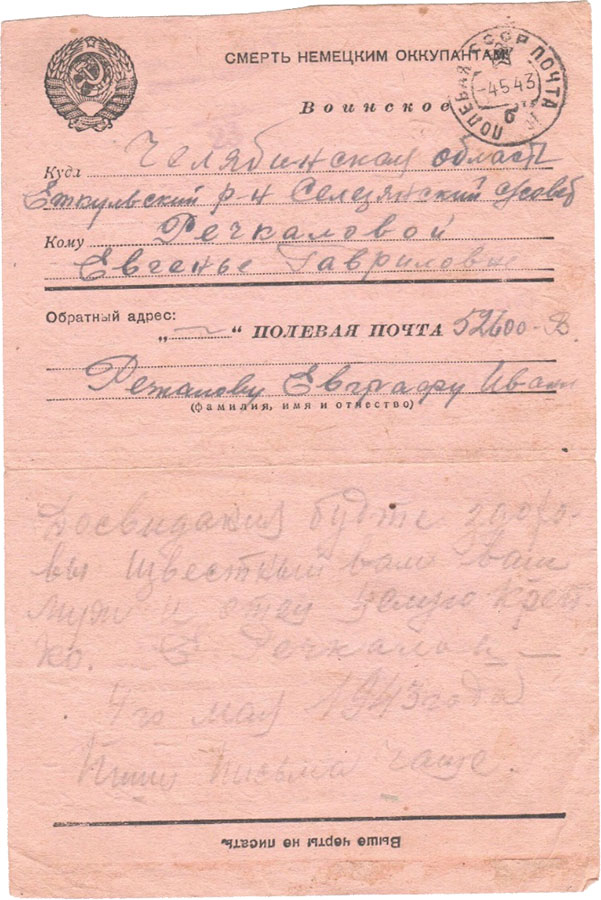 СМЕРТЬ НЕМЕЦКИМ ОККУПАНТАМ
СССР ПОЧТА
ПОЛЕВАЯ
-4.5.43
б
Воинское
Куда Челябинская область
Еткульский р-н Селезянский с/совет
Кому Речкаловой
Евгенье Гавриловне
Обратный адрес:
„~“ ПОЛЕВАЯ ПОЧТА 52600-В
Евграфу Иван
(фамилия, имя и отчество)
Досвидания будте здоро-
вы известный вам ваш
муж и отец целую креп-
ко. Речкалов —
4го мая 1943 года
Пиши письма чаще.
Выше черты не писать.